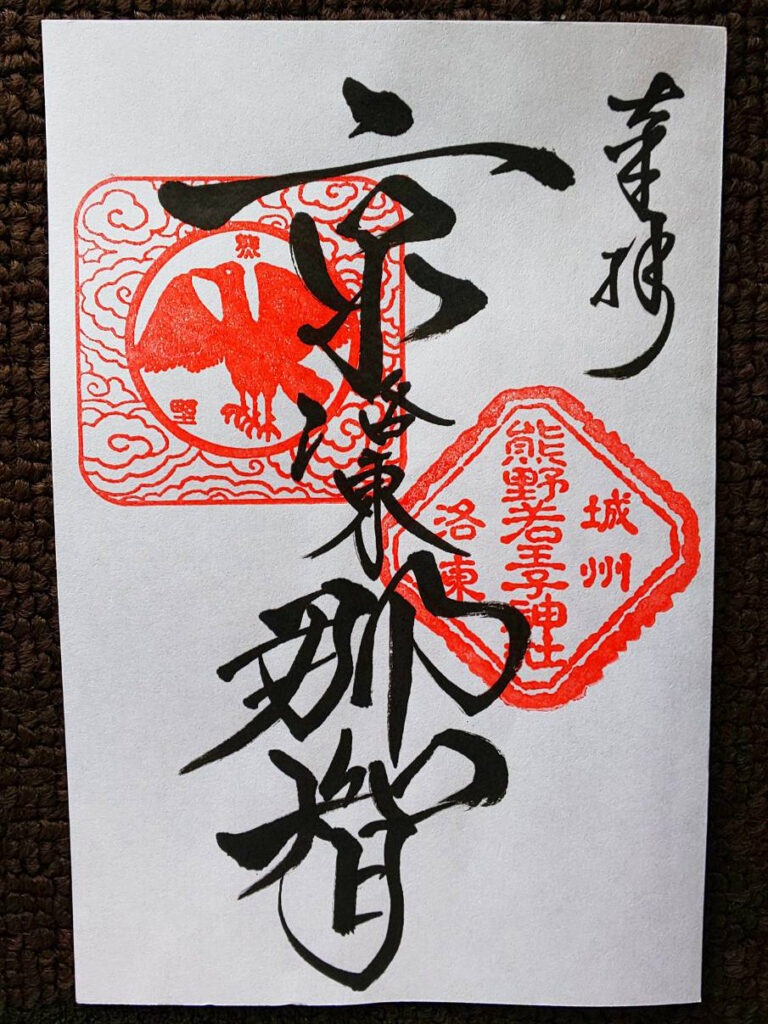 奉拝
京
洛東
那智
城州
熊野若王子神社
洛東
熊
野